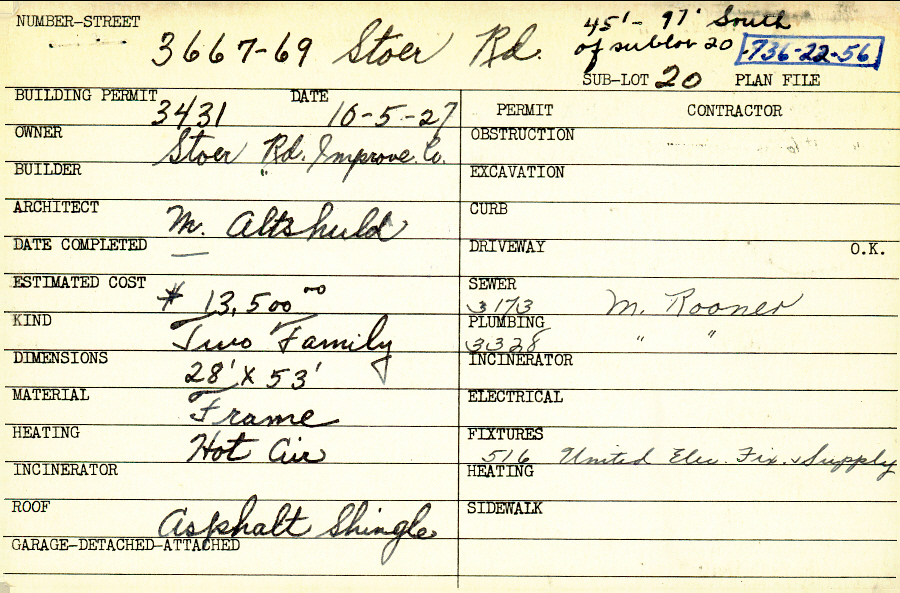 NUMBER-STREET 3667-69 Stoer Rd.
45'- 97' South
of sublot 20 736-22-56
SUB-LOT 20 PLAN FILE
BUILDING PERMIT 3431 DATE 10-5-27
OWNER Stoer Rd. Improve. Co.
BUILDER "
ARCHITECT M. Altshuld
DATE COMPLETED —
ESTIMATED COST $ 13,500 00
KIND Two Family
DIMENSIONS 28' x 53'
MATERIAL Frame
HEATING Hot Air
INCINERATOR
ROOF Asphalt Shingle
GARAGE-DETACHED-ATTACHED
PERMIT CONTRACTOR
OBSTRUCTION
EXCAVATION
CURB
DRIVEWAY O.K.
SEWER
3173 M. Rooner
PLUMBING
3328 " "
INCINERATOR
ELECTRICAL
FIXTURES
516 United Elec. Fix. & Supply
HEATING
SIDEWALK